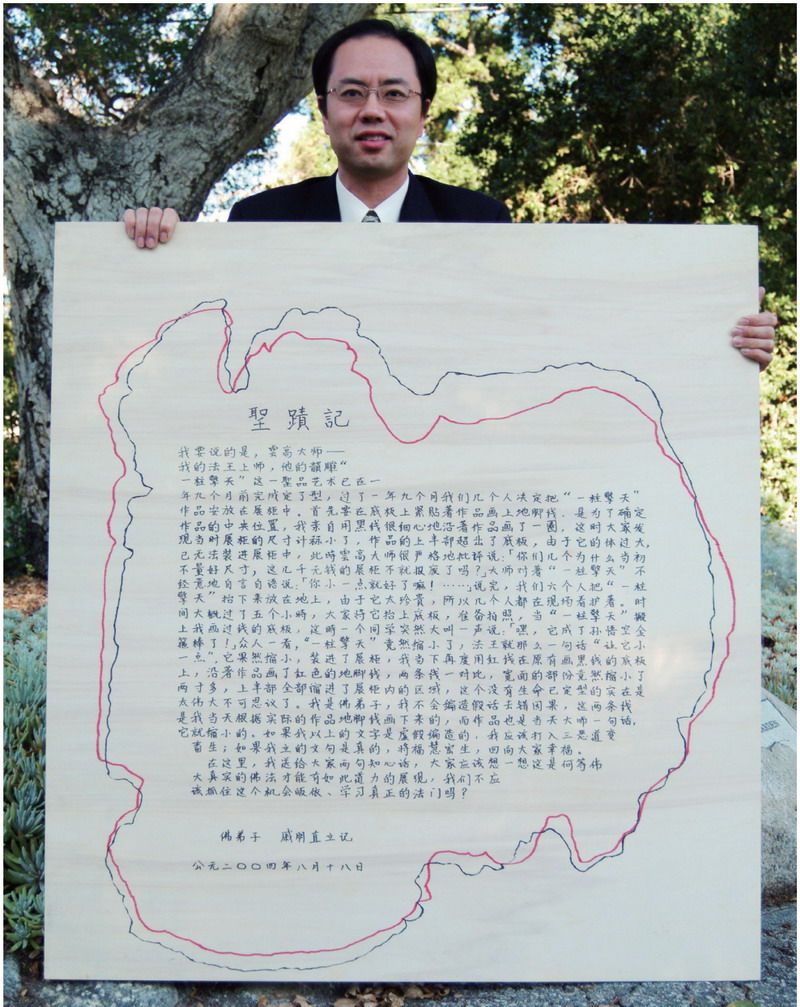 聖蹟記
我要说的是，雲高大师——
我的法王上师，他的韻雕“
一柱擎天”这一聖品艺术已在一
年九个月前完成定了型，过了一年九个月我们几个人决定把“一柱擎天”
作品安放在展柜中。首先要在底板上紧贴着作品画上地脚线，是为了确定
作品的中央位置，我亲自用黑线很细心地沿著作品画了一圈，这时大家发
现当时展柜的尺寸计标小了，作品的上半部超出了底板，由于它的体过大，
已无法裝进展柜中，此時雲高大师很严格地批评说：「你们几个为什么当初
不量好尺寸，这几千元钱的展柜不就报废了吗？」大师对著“一柱擎天”不
经意地自言自语说：「你小一点就好了嘛！……」说完，我们六个人把“一柱
擎天”抬下来放在地上，由于它太珍贵，所以几个人都在现场看护著。时
间大概过了五个小時，大家将它抬上底板，准备拍照，当“一柱擎天”搬
上我画过线的底板，这時一个同学突然大叫一声说：「嘿，它成了孙悟空金
箍棒了！」众人一看，“一柱擎天”竟然缩小了，法王就那么一句话“让它小
一点”，它果然缩小，裝进了展柜，我当下再度用红线在原有画黑线的底板
上，沿著作品画了红色的地脚线，两条线一对比，宽面的部份竟然缩小了
两寸多，上半部全部缩进了展柜内的区域，这个没有生命已定型的实在是
太伟大不可思议了。我是佛弟子，我不会编造假话去错因果，这两条线
是我当天根据实际的作品地脚线画下来的，而作品也是当天大师一句话，
它就缩小的。如果我以上的文字是虚假偏造的，我应该打入三恶道变
畜生；如果我立的文句是真的，将福慧宏生，回向大家幸福。
在这里，我送给大家两句知心话，大家应该想一想这是何等伟
大真实的佛法才能有如此道力的展现，我们不应
该抓住这个机会皈依、学习真正的法门吗？
佛弟子 戚朋直立记
公元二〇〇四年八月十八日